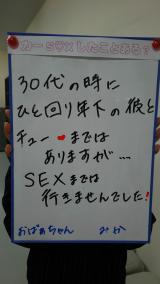 カーSEXしたことある?
30代の時に
ひと回り年下の彼と
チュー❤までは
ありますが…
SEXまでは
行きませんでした!
おばあちゃん みか